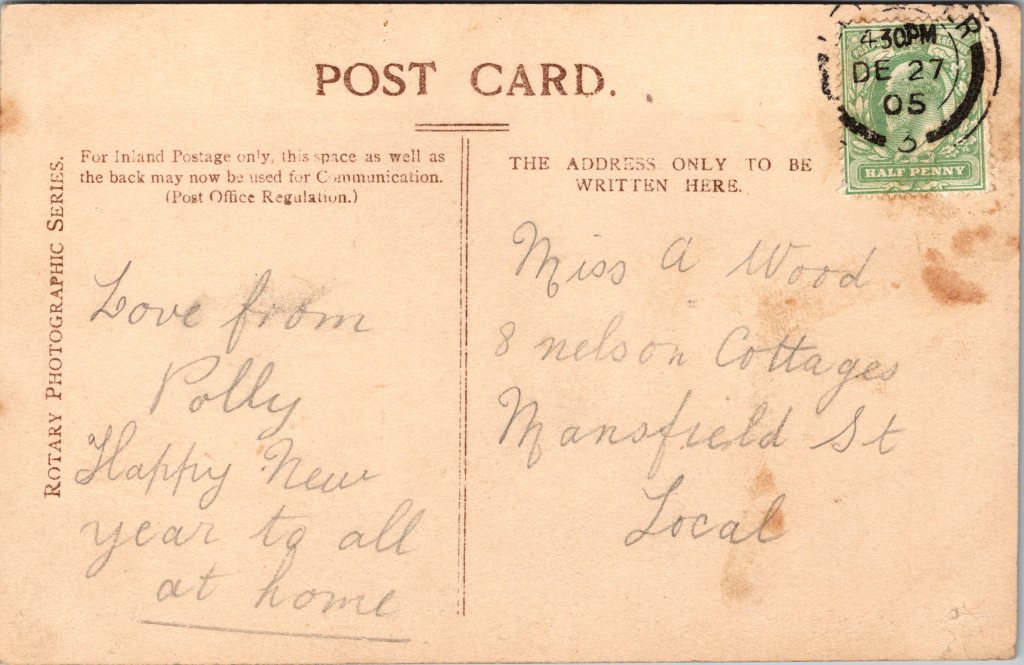 POST CARD.
ROTARY PHOTOGRAPHIC SERIES.
For Inland Postage only, this space as well as
the back may now be used for Communication.
(Post Office Regulation.)
THE ADDRESS ONLY TO BE
WRITTEN HERE.
4 30PM
DE 27
05
3
HALF PENNY
Love from
Polly
Happy New
year to all
at home
Miss A Wood
8 nelson Cottages
Mansfield St
Local